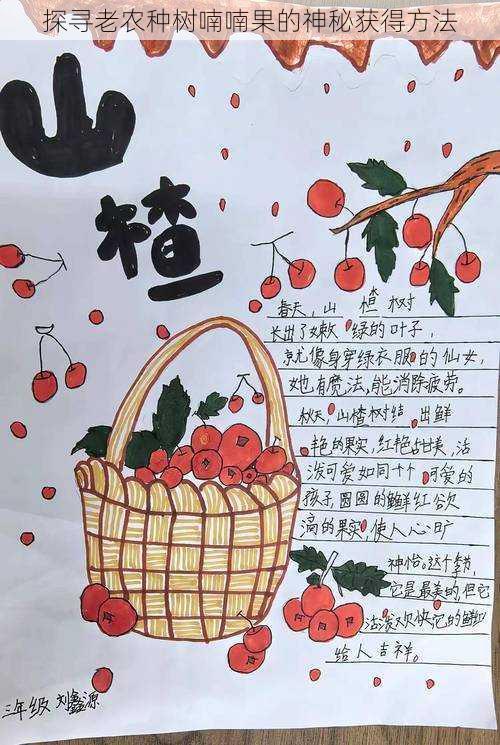 探寻老农种树喃喃果的神秘获得方法
山
楂
春天，山楂树
长出了嫩绿的叶子，
京尤像身穿绿衣服的仙女，
她有魔法，能消除疲劳。
秋天，山楂树结出鲜
艳的果实，红艳
泼可爱如同十个可爱的
孩子，圆圆的鲜红欲
滴的果实，使人心旷
神怡。这个季节，
它是最美的，但它
活泼欢快，它的鲜
给人吉祥。
三年级 刘鑫源